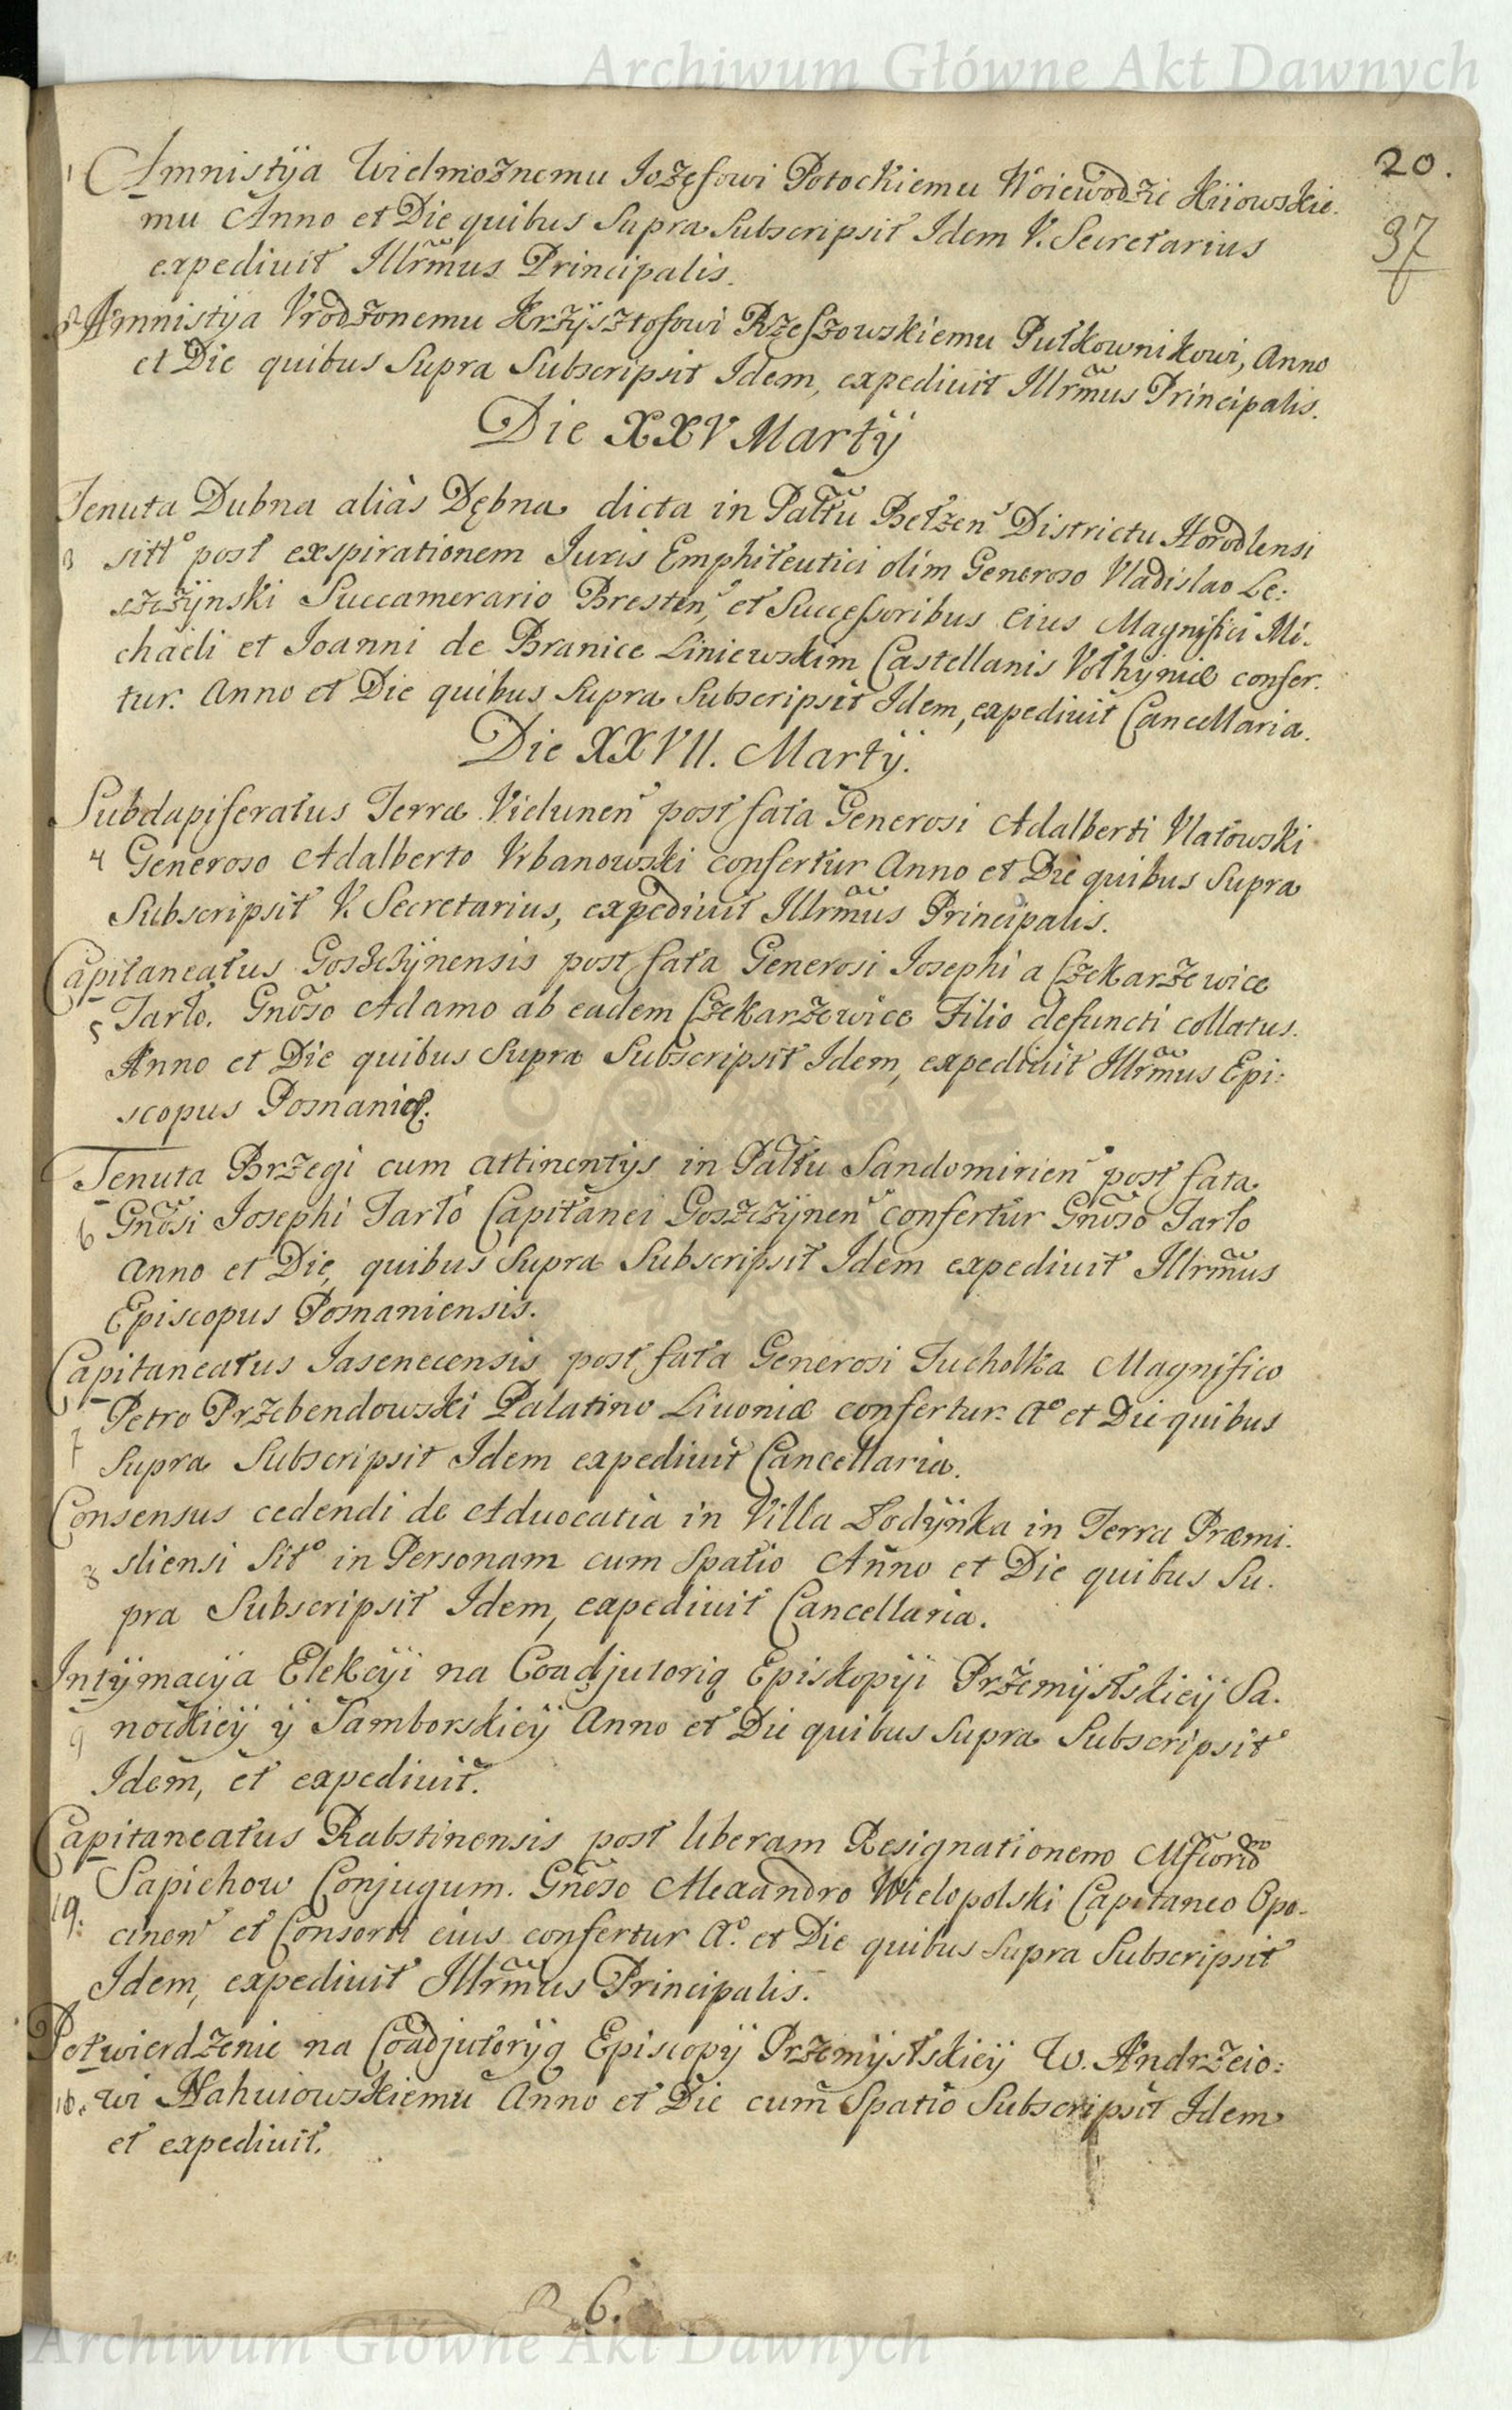 Archiwum Główne Akt Dawnych
20.
37
1 Amnistÿa Wielmożnemu Iozęfowi Potockiemu Woiewodzie Kiiowskie.
mu Anno et Die quibus Supra Subscripsit Idem V. Secretarius
expediuit Illrmus Principalis.
2 Amnistÿa Vrodzonemu Krzÿsztofowi Rzeszowskiemu Pułkownikowi, Anno
et Die quibus Supra Subscripsit Idem, expediuit Illrmus Principalis.
Die XXV Martÿ
Tenuta Dubna aliàs Dębna dicta in Pałłu Bełzen Districtu Horodlensi
3 sitt° post exspirationem Iuris Emphiteutici olim Generoso Vladislao Le:
szczÿnski Succamerario Bresten, et Successoribus eius Magnifici Mi.
chaeli et Ioanni de Branice Liniewskim Castellanis Vołhyniæ confer.
tur. Anno et Die quibus Supra Subscripsit Idem, expediuit Cancellaria.
Die XXVII. Martÿ.
Subdapiferatus Terræ Vielunen post fata Generosi Adalberti Vlatowski
4 Generoso Adalberto Vrbanowski confertur Anno et Die quibus Supra
Subscripsit V. Secretarius, expediuit Illrmus Principalis.
Capitaneatus Goszczÿnensis post fata Generosi Iosephi a Czekarzewice
5 Tarło. Gnoso Adamo ab eadem Czekarzewice Filio defuncti collatus.
Anno et Die quibus Supra Subscripsit Idem, expediuit Illrmus Epi:
scopus Posnaniæ.
Tenuta Brzegi cum attinentÿs in Pałłu Sandomirien post fata
6 Gnosi Iosephi Tarło Capitanei Goszczÿnen confertur Gnoso Tarło
Anno et Die, quibus Supra Subscripsit Idem expediuit Illrmus
Episcopus Posnaniensis.
Capitaneatus Iasenecensis post fata Generosi Tuchołka Magnifico
Petro Przebendowski Palatino Liuoniæ confertur. A° et Die quibus
7 Supra Subscripsit Idem expediuit Cancellaria.
Consensus cedendi de Aduocatia in Villa Łodÿnka in Terra Præmi.
8 sliensi Sit° in Personam cum Spatio Anno et Die quibus Su.
pra Subscripsit Idem, expediuit Cancellaria.
Intÿmacÿa Elekcÿi na Coadjutorią Episkopÿi Przemÿslskieÿ Sa.
9 nockieÿ ÿ Samborskieÿ Anno et Die quibus Supra Subscripsit
Idem, et expediuit.
Capitaneatus Rabstinensis post liberam Resignationem
Sapiehow Conjugum. Gnoso Alexandro Wielopolski Capitaneo Opo-
19: cinen et Consorti eius confertur A°. et Die quibus Supra Subscripsit
Idem, expediuit Illrmus Principalis.
Potwierdzenie na Coadjutorÿą Episcopÿ Przemÿslskieÿ W. Andrzeio:
10. wi Nahuiowskiemu Anno et Die cum Spatio Subscripsit Idem
et expediuit.
6.
Archiwum Główne Akt Dawnych